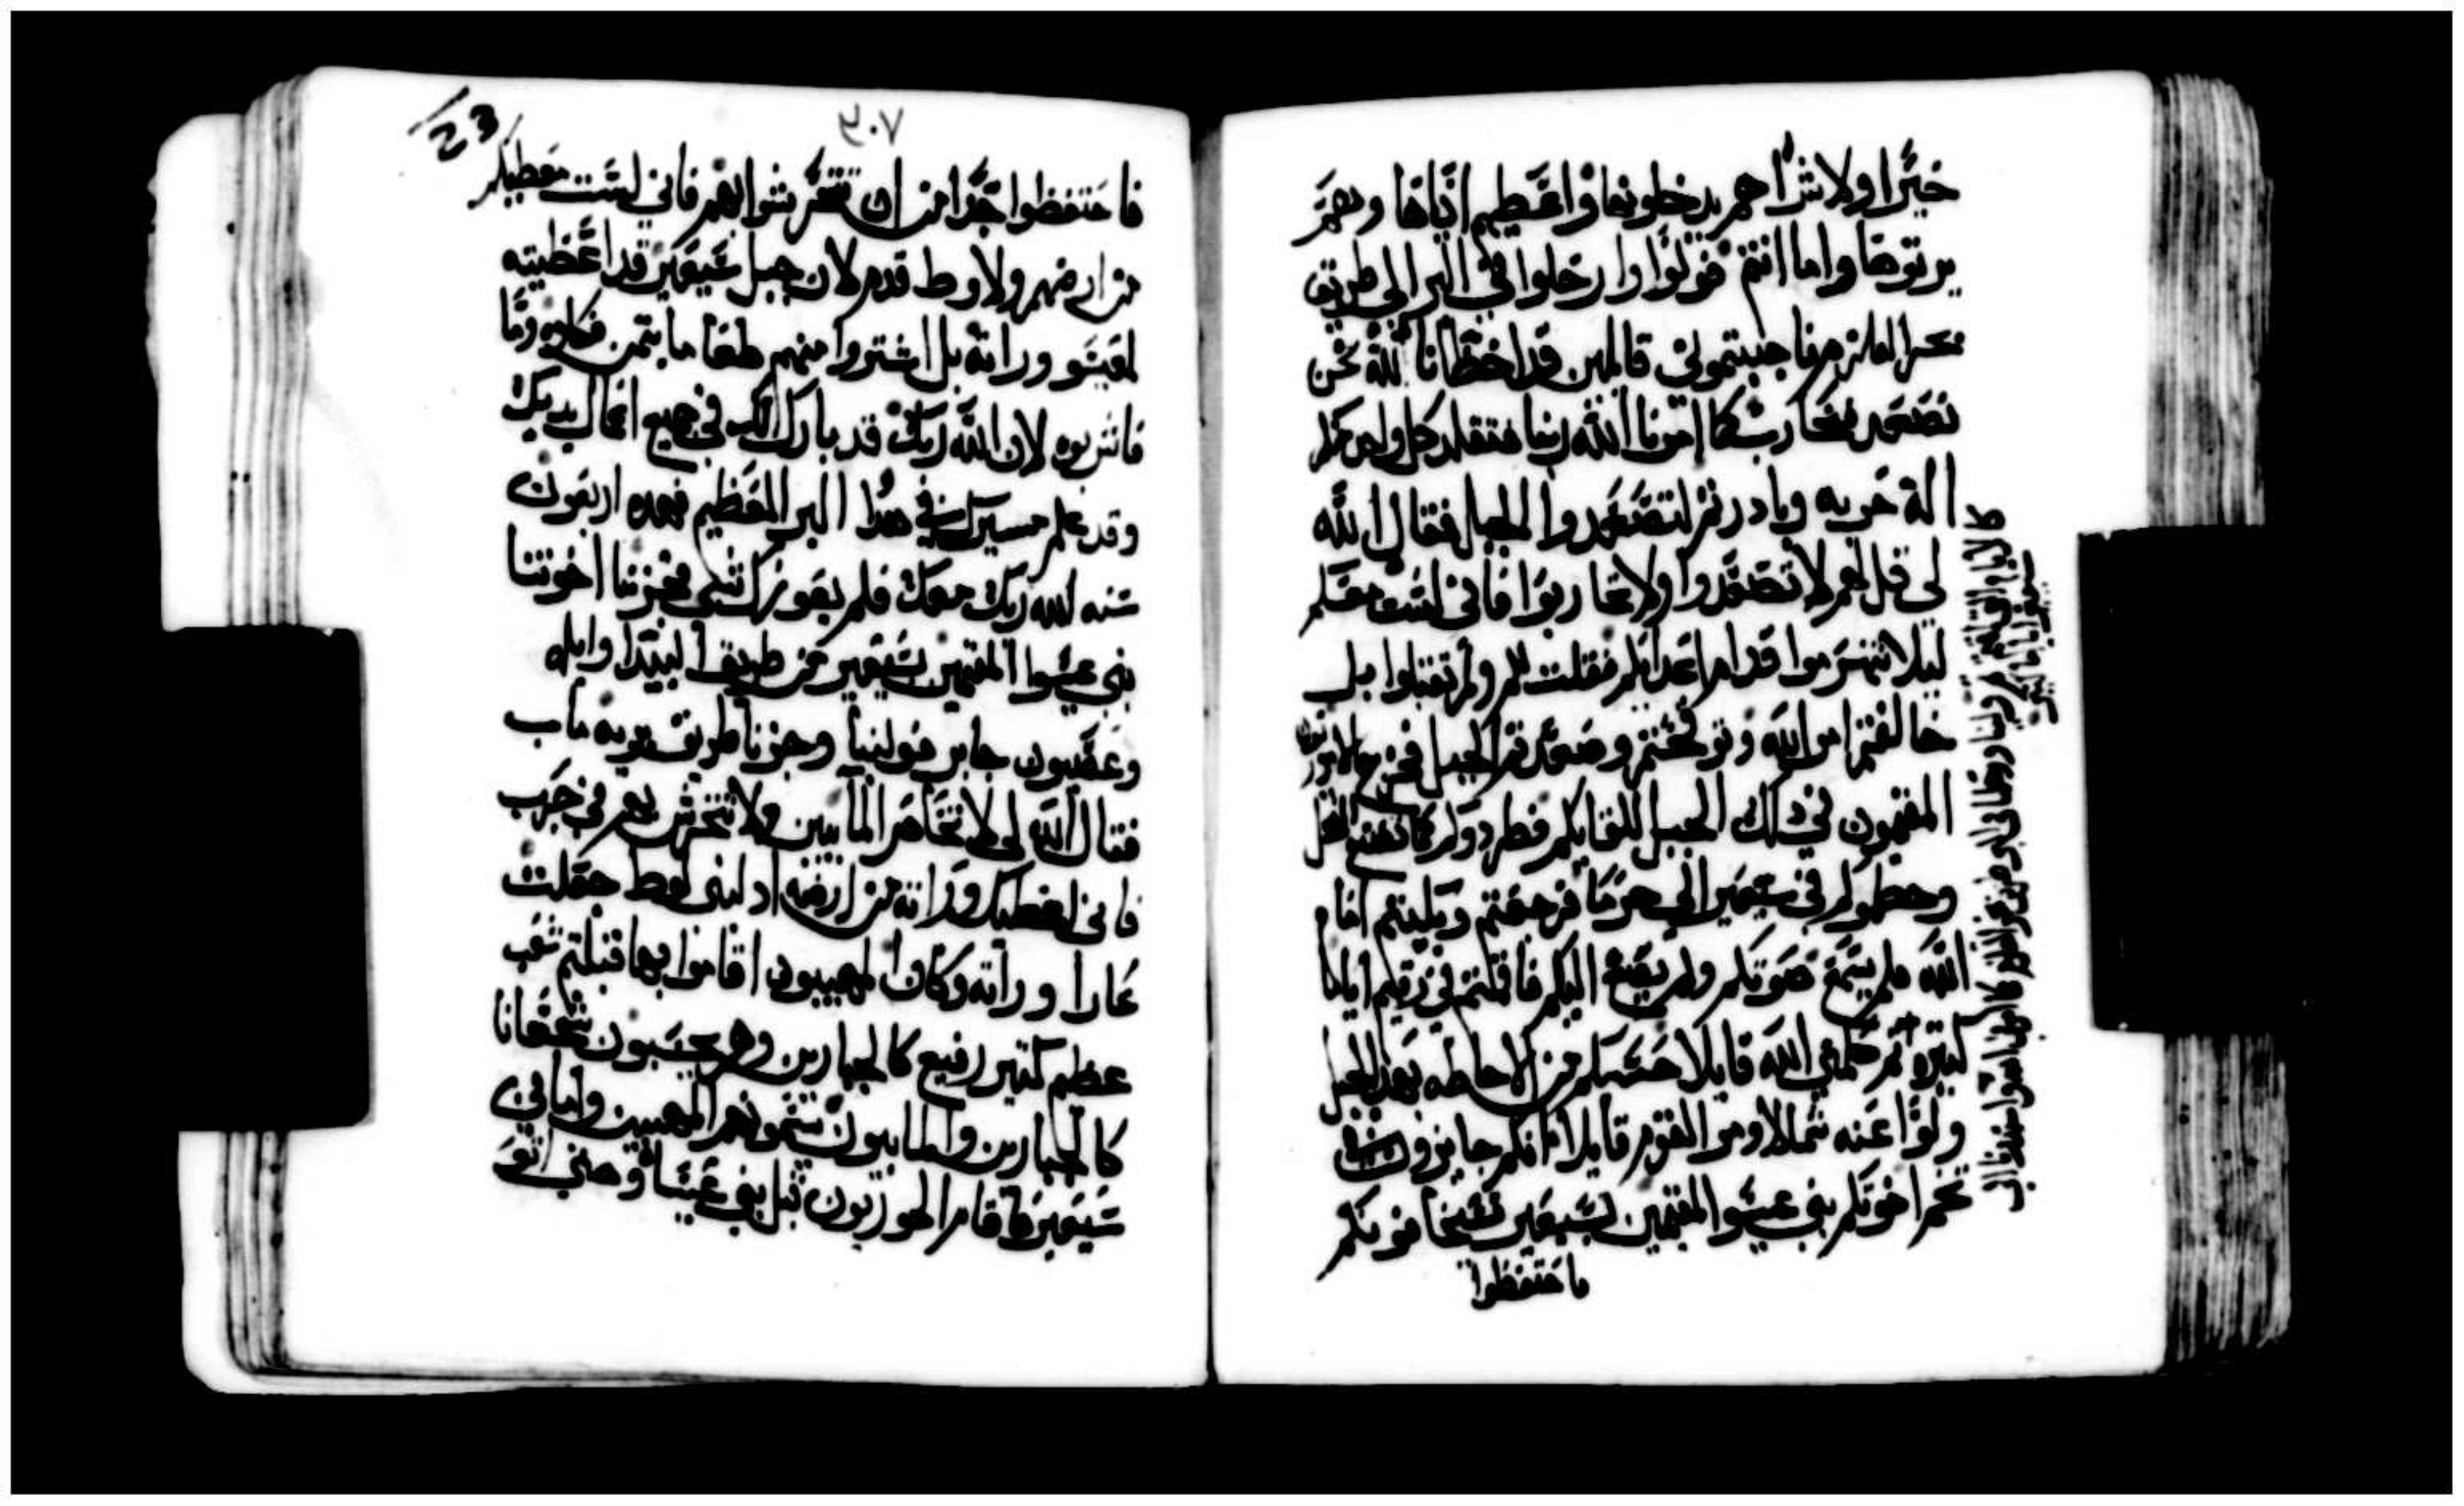 خيرا ولا شرا هم يدخلونها واعطيهم اياها وهم
يرثوها واما انتم فولوا وارحلوا في البر الى طريق
بحر القلزم فاجبتموني قايلين قد اخطانا لله نحن
نصعد نحارب كما امرنا الله ربنا فتقلد كل واحد منكم
الة حربه وبادرتم لتصعدوا الى الجبل فقال الله
لي قل لهم لا تصعدوا ولا تحاربوا فاني لست معكم
ليلا تنهزموا قدام اعدايكم فقلت لكم ولم تقبلوا بل
خالفتم امر الله وتوقحتم وصعدتم الجبل فخرج الاموريون
المقيمون في ذلك الجبل للقايكم فطردوكم كما تصنع النحل
وحطموكم في سيعير الى حرما فرجعتم وبكيتم امام
الله فلم يسمع صوتكم ولم يصغ اليكم فاقمتم في رقيم اياما
كثيرة ثم كلمني الله قايلا حسبكم من الاحاطه بهذا الجبل
ولوا عنه شمالا ومر القوم قايلا انكم جايزون
تخم اخوتكم بني عيسوا المقيمين بسيعير فسيخافونكم
فاحتفظوا
كالايام التي اقمتم ثم ولينا ورحلنا في البر طريق بحر القلزم كما امرنا الله
٢٠٧
23
فاحتفظوا جدا من ان تتحرشوا بهم فاني لست معطيكم
من ارضهم ولا وط قدم لان جبل سيعير قد اعطيته
لعيسو وراثة بل اشتروا منهم طعاما بثمن فكلوه وما
فاشربوه لان الله ربك قد بارك لك في جميع اعمال يديك
وقد علم مسيرك في هذا البر العظيم فهذه اربعون
سنه الله ربك معك فلم يعوزك شي فجزنا اخوتنا
بني عيسوا المقيمين بسيعير من طريق البيدا وايله
وعصيون جابر فولينا وجزنا طريق برية ماب
فقال الله لي لا تحاصر المابيين ولا تتحرش بهم في حرب
فاني لا اعطيك وراثة من ارضه اذ لبني لوط جعلت
عارا وراثه وكان المهيبون اقاموا بها قبلهم شعب
عظيم كثير رفيع كالجبارين وهم يحسبون شجعانا
كالجبارين والمابيون يسمونهم المهيبين واما في
سيعير فاقام الحوريون قبل بني عيسا وهني